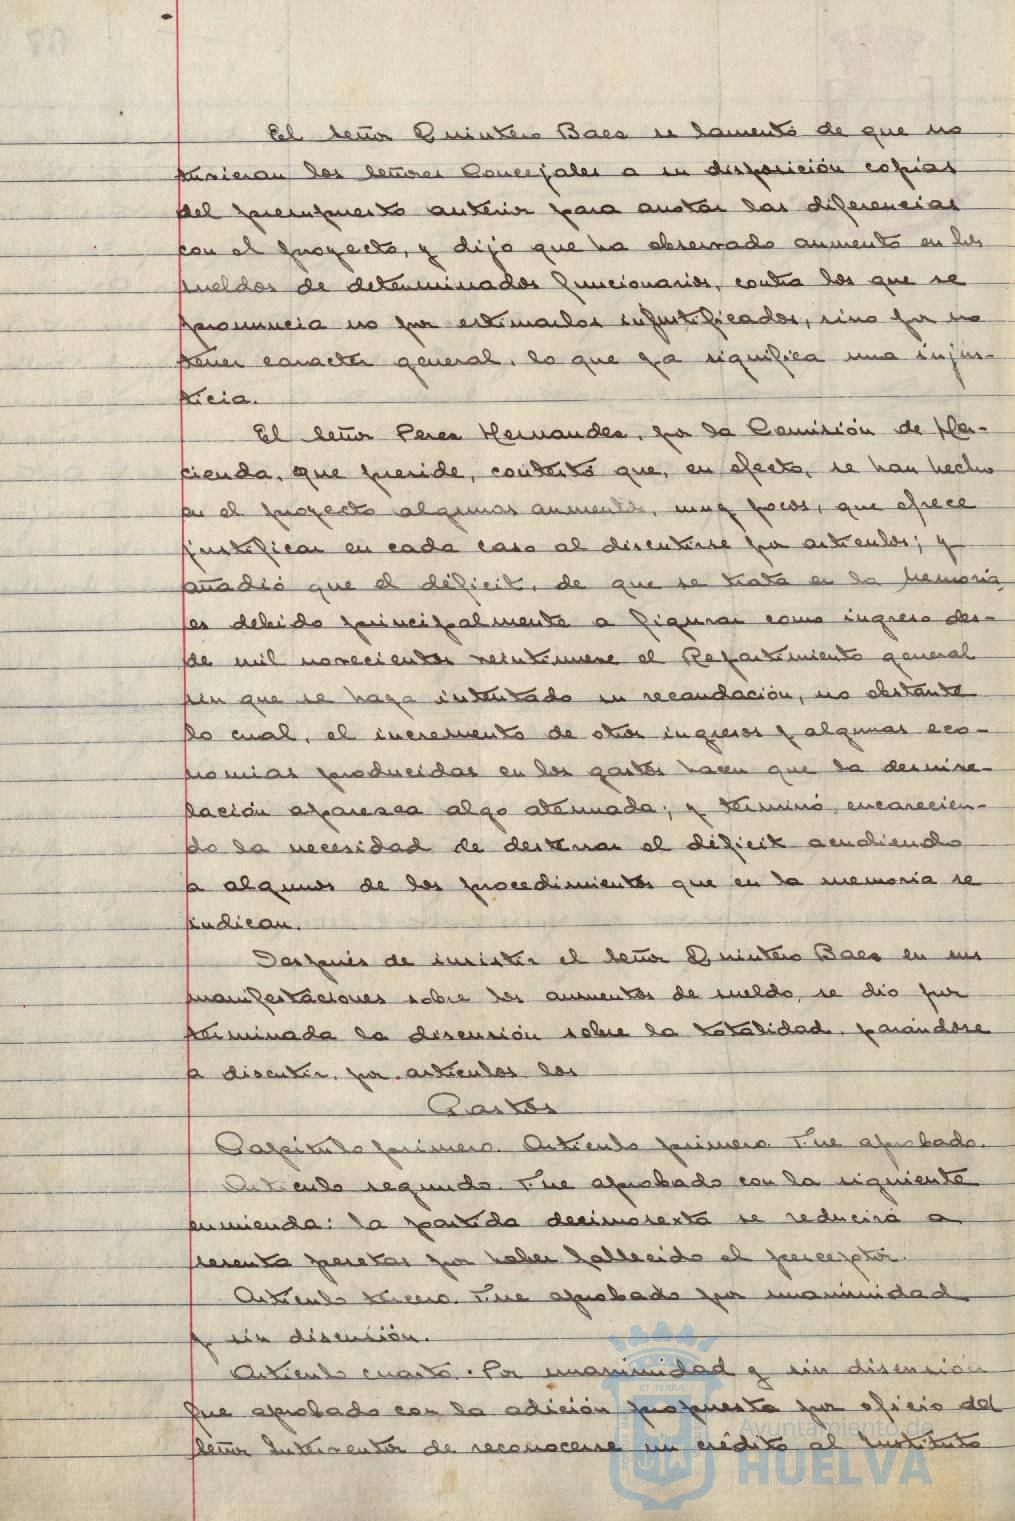 El señor Quintero Baez se lamentó de que no
tuvieran los señores Concejales a su disposición copias
del presupuesto anterior para anotar las diferencias
con el proyecto, y dijo que ha observado aumento en los
sueldos de determinados funcionarios, contra los que se
pronuncia no por estimarlos injustificados, sino por no
tener caracter general, lo que ya significa una injus-
ticia.
El señor Perez Hernandez, por la Comisión de Ha-
cienda, que preside, contestó que, en efecto, se han hecho
en el proyecto algunos aumentos, muy pocos, que ofrece
justificar en cada caso al discutirse por artículos; y
añadió que el déficit, de que se trata en la Memoria,
es debido principalmente a figurar como ingreso des-
de mil novecientos veintinueve el Repartimiento general
sin que se haya intentado su recaudación, no obstante
lo cual, el incremento de otros ingresos y algunas eco-
nomías producidas en los gastos hacen que la desnive-
lación aparezca algo atenuada; y terminó, encarecien-
do la necesidad de desterrar el déficit acudiendo
a algunos de los procedimientos que en la memoria se
indican.
Después de insistir el señor Quintero Baez en sus
manifestaciones sobre los aumentos de sueldo, se dió por
terminada la discusión sobre la totalidad, pasándose
a discutir, por artículos, los
Gastos
Capítulo primero. Artículo primero. Fue aprobado.
Artículo segundo. Fue aprobado con la siguiente
enmienda: la partida decimosexta se reducirá a
sesenta pesetas por haber fallecido el perceptor.
Artículo tercero. Fue aprobado por unanimidad
y sin discusión.
Artículo cuarto. Por unanimidad y sin discusión
fue aprobado con la adición propuesta por oficio del
señor Interventor de reconocerse un crédito al Instituto
Ayuntamiento de
HUELVA